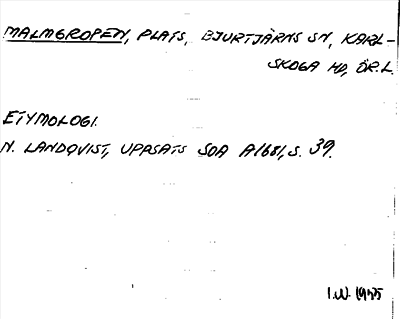 MALMGROPEN, PLATS, BJURTJÄRNS SN, KARL-
SKOGA HD, ÖR.L.
ETYMOLOGI.
N. LANDQVIST, UPPSATS SOA A1681, S. 39.
I.W. 1955